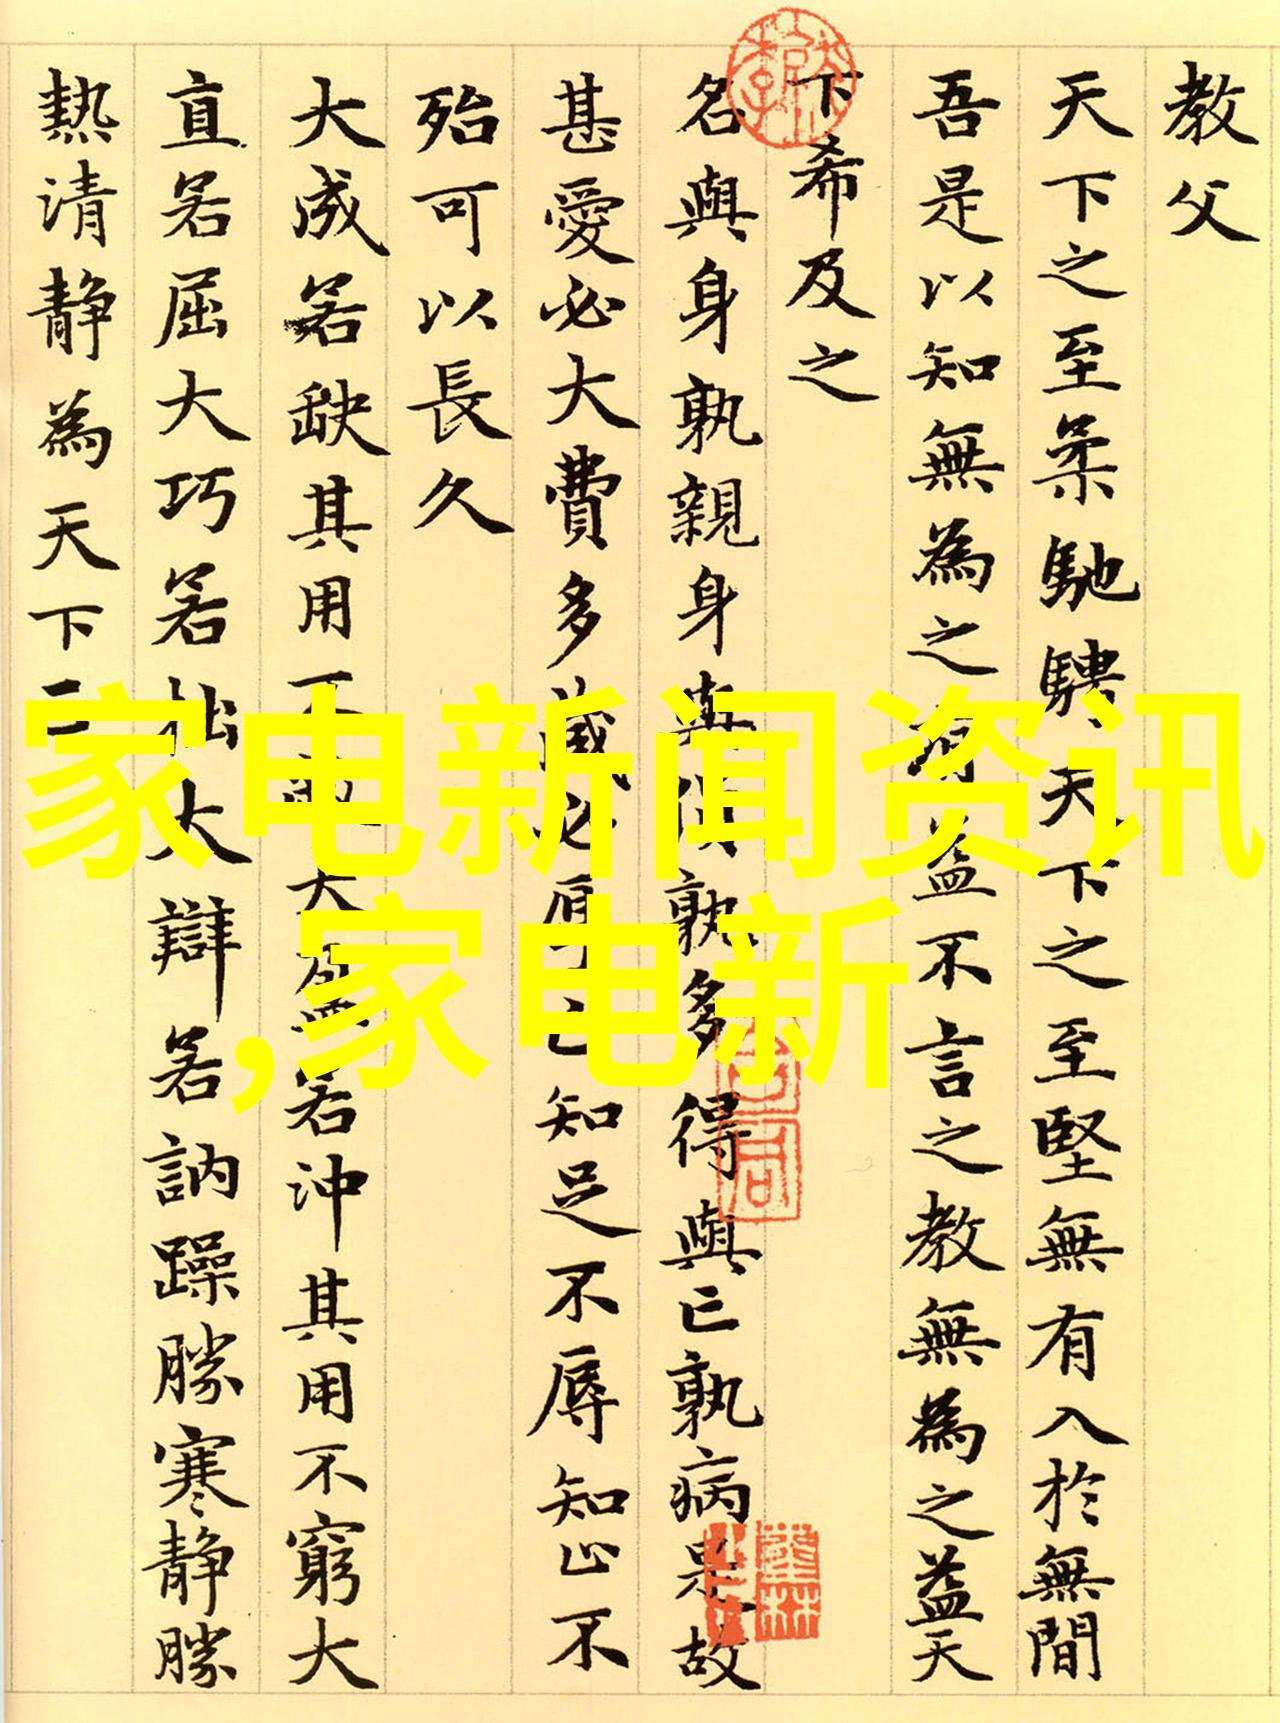 教父
天下之至柔馳騁天下之至堅無有入於無間
吾是以知無為之有益不言之教無為之益天
下希及之
名與身孰親身與貨孰多得與亡孰病是故
甚愛必大費多藏必厚亡知足不辱知止不
殆可以長久
大成若缺其用不弊大盈若沖其用不窮大
直若屈大巧若拙大辯若訥躁勝寒静勝
熱清静為天下正
家电新闻资讯
,家电新